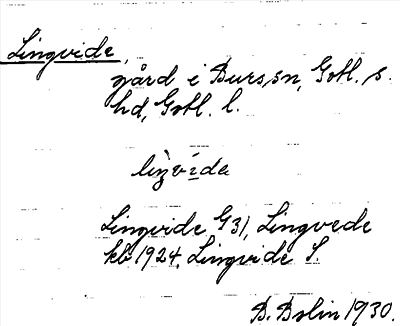 Lingvide,
gård i Burs, sn, Gotl. s.
hd, Gotl. l.
liŋvìda
Lingvide G 31, Lingvede
kb 1924, Lingvide S.
D. Bolin 1930.